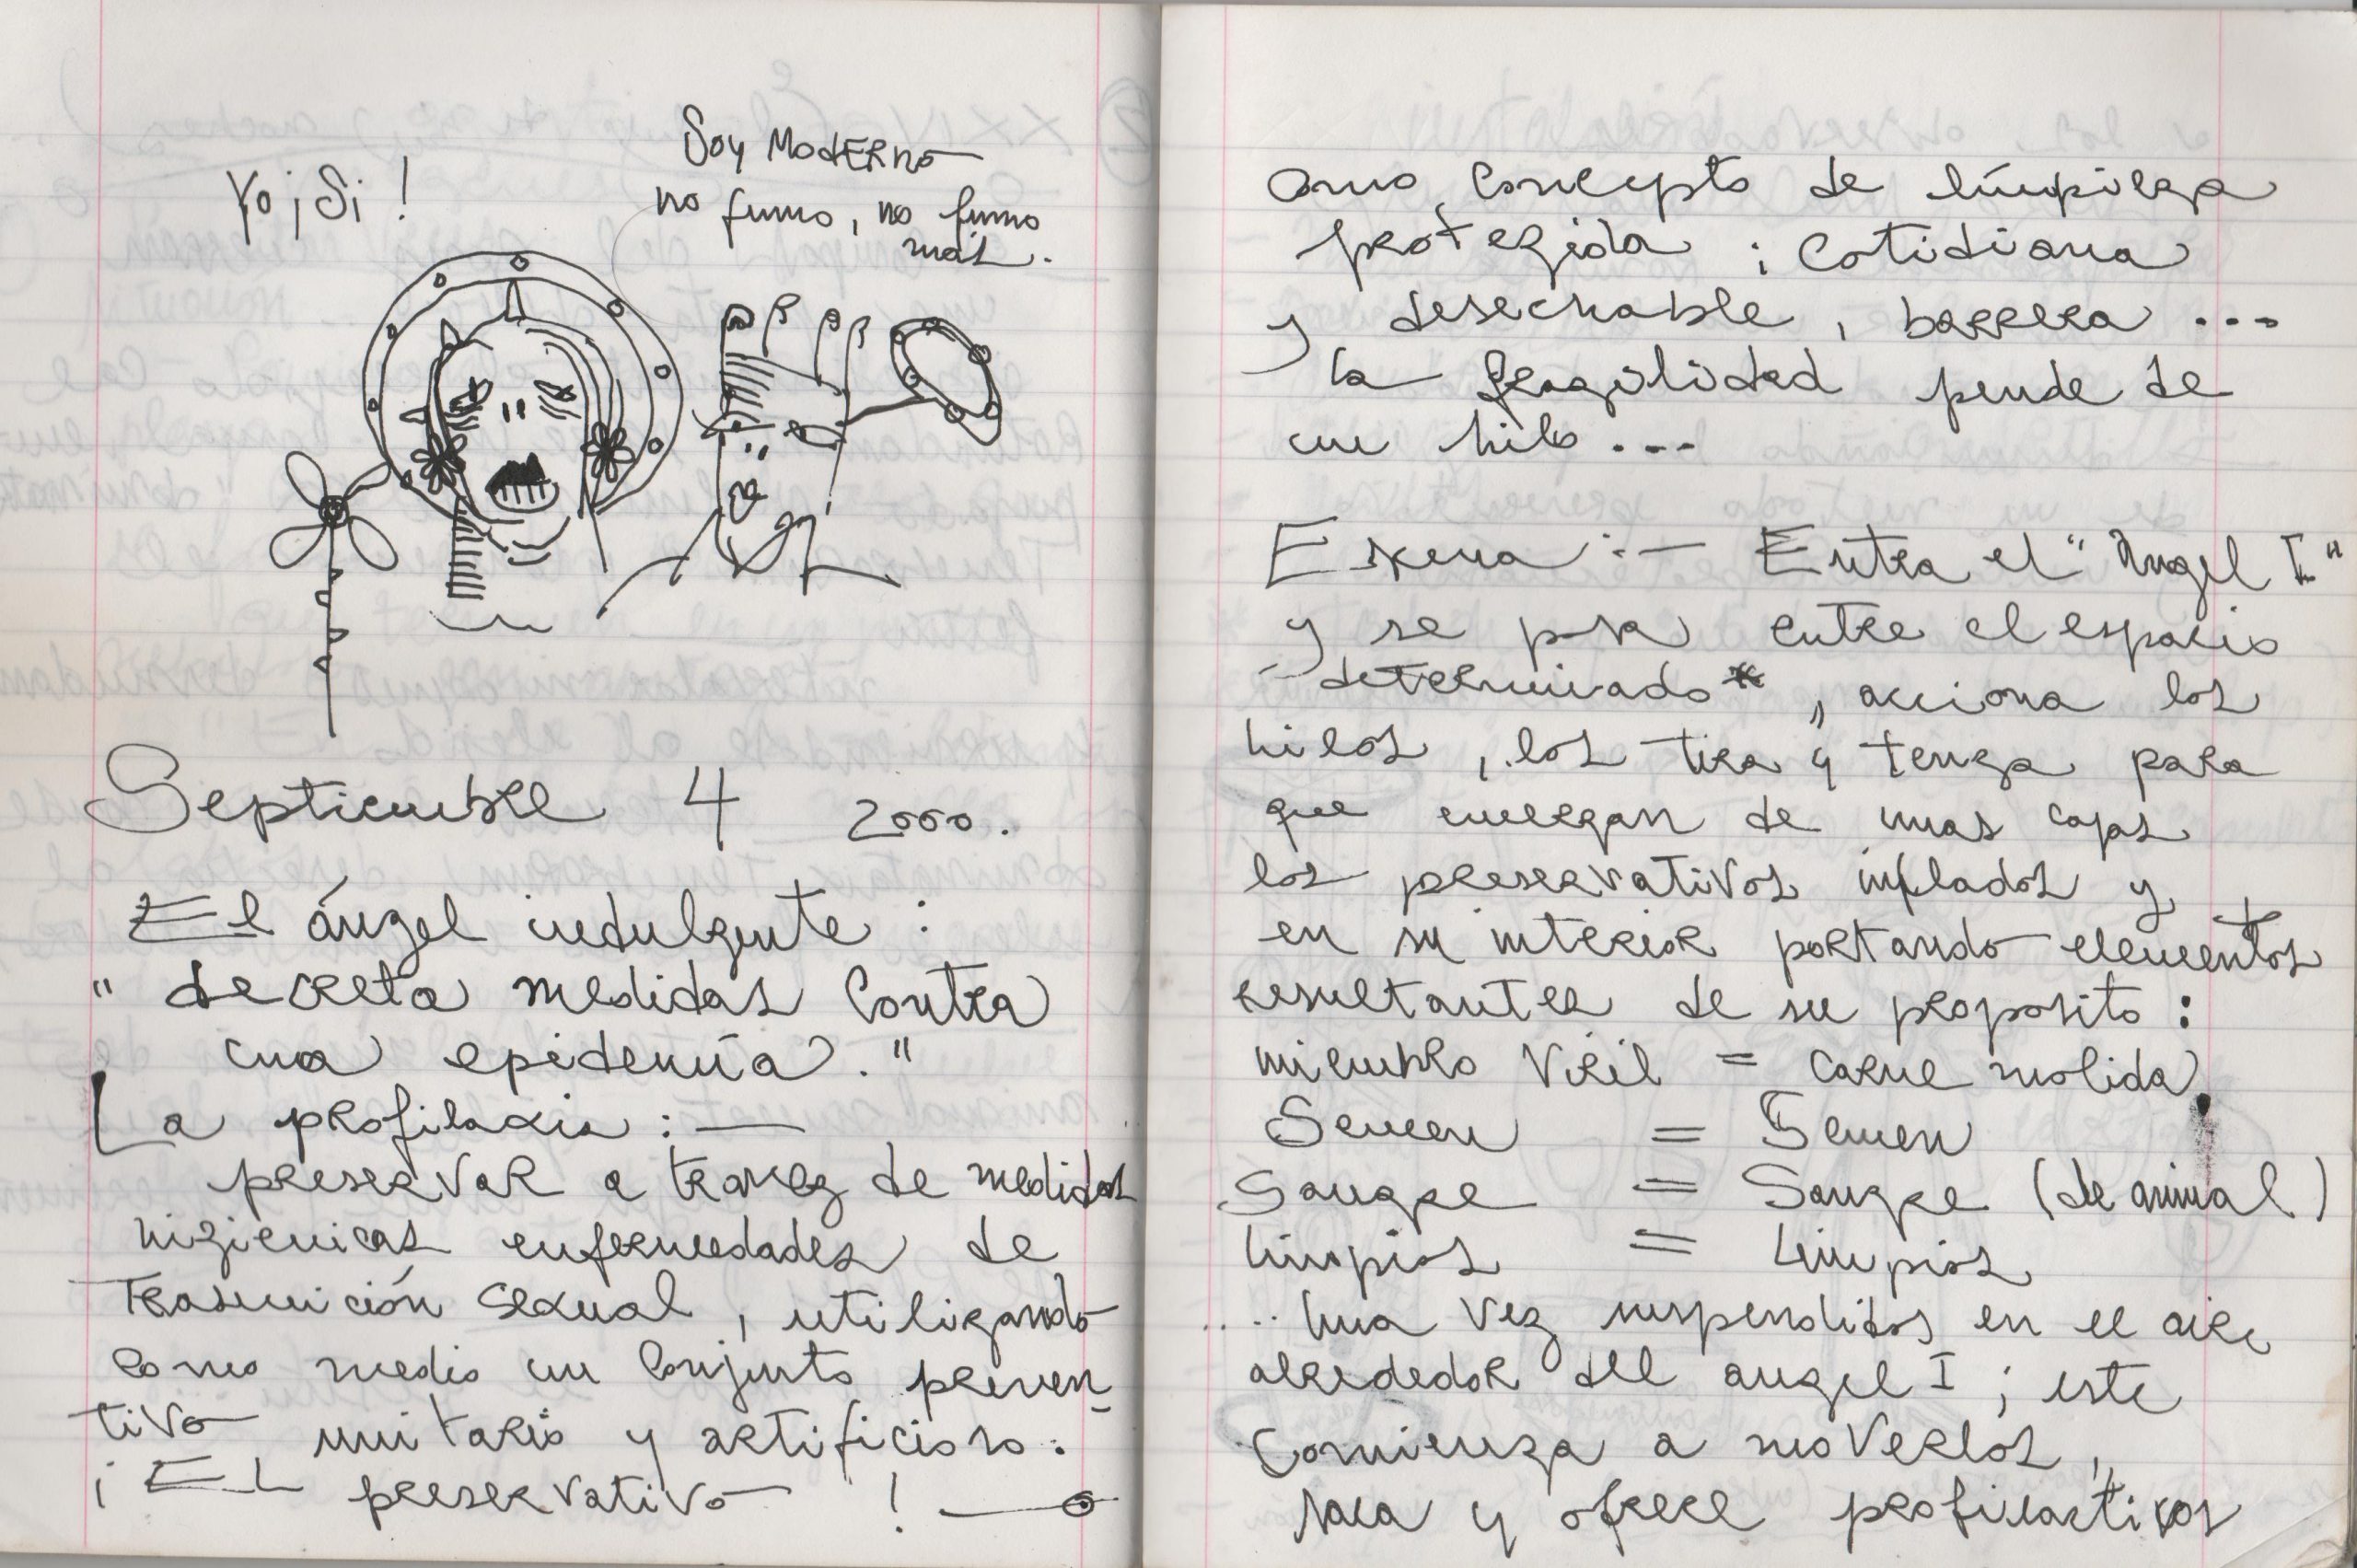 Yo ¡Si!
Soy MODERNO
no fumo, no fumo
más.
Septiembre 4 2000.
El ángel indulgente :
" decreta medidas contra
una epidemia."
La profilaxis : —
preservar a travez de medidas
higienicas enfermedades de
Trasmición sexual, utilizando
como medio un conjunto preven-
tivo unitario y artificioso:
¡ EL preservativo !
como concepto de limpieza
protegida ; cotidiana
y desechable, barrera ...
la fragilidad pende de
un hilo ...
Escena :— Entra el "Angel I"
y se posa entre el espacio
determinado*, acciona los
hilos, los tira y tenza para
que emergan de unas cajas
los preservativos inflados y
en su interior portando elementos
resultantes de su proposito :
miembro viril = carne molida
Semen = Semen
Sangre = Sangre (de animal)
limpios = limpios
.... una vez suspendidos en el aire
alrededor del angel I ; este
comienza a moverlos,
saca y ofrece profilacticos